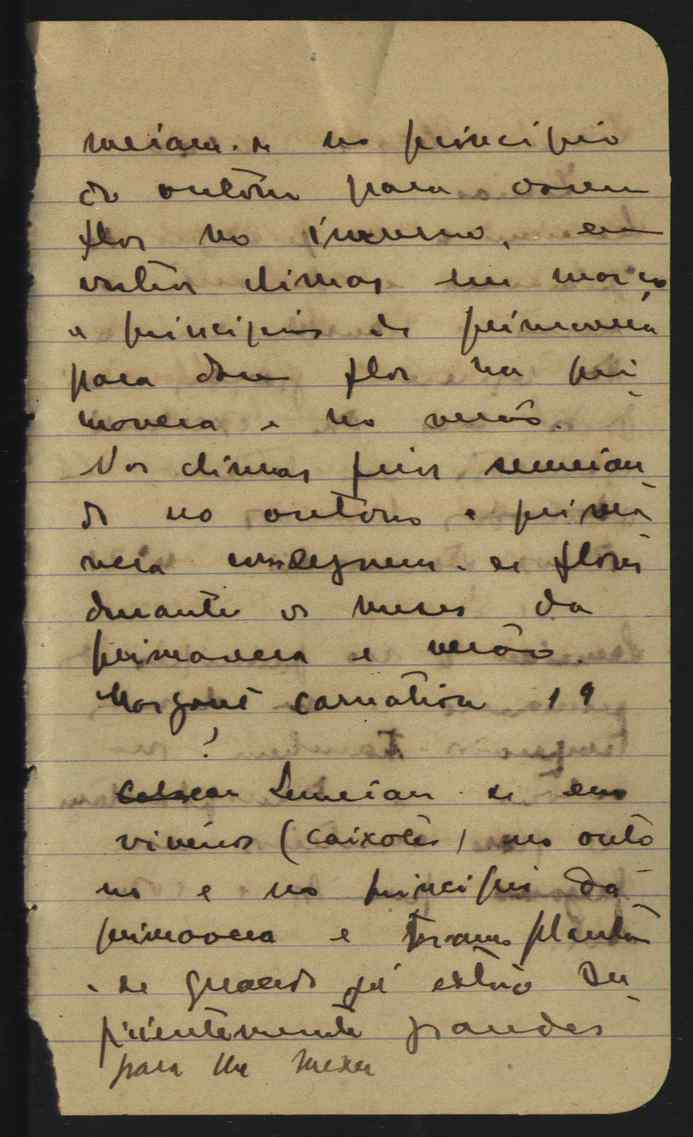 meiam-se no principio
do outôno para darem
flor no inverno, em
outros climas em março
a principios de primavera
para dar flor na pri
mavera e no verão.
Nos climas frios semeian
do no outôno e prima
vera conseguem-se flores
durante os meses da
primavera e verão.
carnation 19
?
Colocam Semeiam-se em
viveiros (caixotes) no outô
no e no principio da
primavera e transplantam
-se quando já estão su
ficientemente grandes
para se mexer